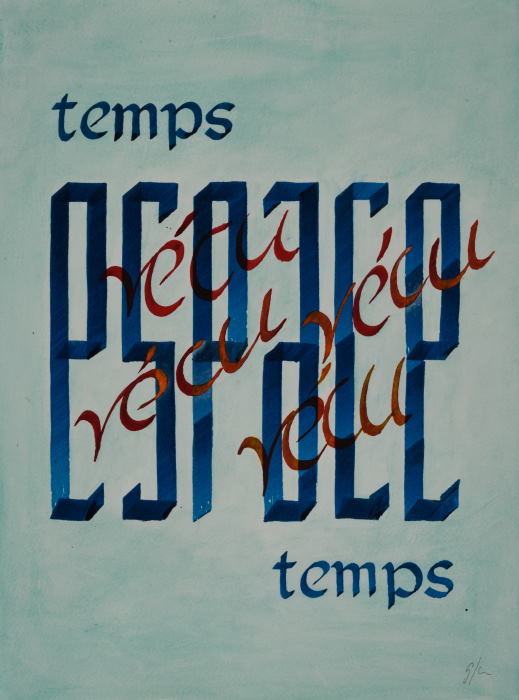 temps
espace
vécu
vécu
vécu
vécu
temps